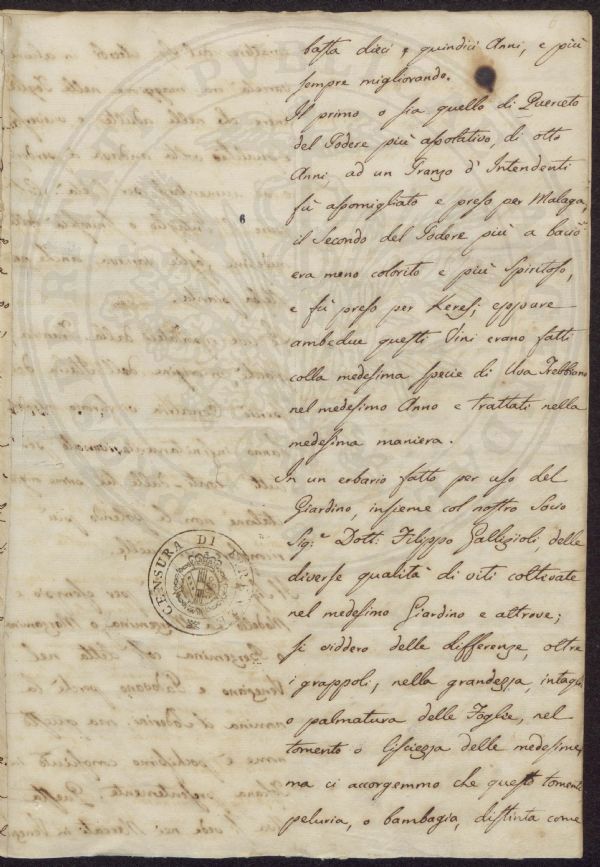 basta dieci, o quindici Anni, e più
sempre migliorando.
Il primo o sia quello di Querceto
del Podere più assolativo, di otto
Anni, ad un Pranzo d'Intendenti
fù assomigliato e preso per Malaga,
il Secondo del Podere più a bacìo
era meno colorito e più Spiritoso,
e fù preso per Keres; eppure
ambedue questi Vini erano fatti
colla medesima specie di Uva Trebbiano
nel medesimo Anno e trattati nella
medesima maniera.
In un erbario fatto per uso del
Giardino, insieme col nostro Socio
Sig.ʳ Dott: Filippo Gallizioli, delle
diverse qualità di viti coltivate
nel medesimo Giardino e altrove;
si viddero delle differenze, oltre
i grappoli, nella grandezza, intaglio
o palmatura delle Foglie, nel
tomento o lisciezza delle medesime,
ma ci accorgemmo che questo tomento
peluria, o bambagia, distinta come
6
CENSURA DI